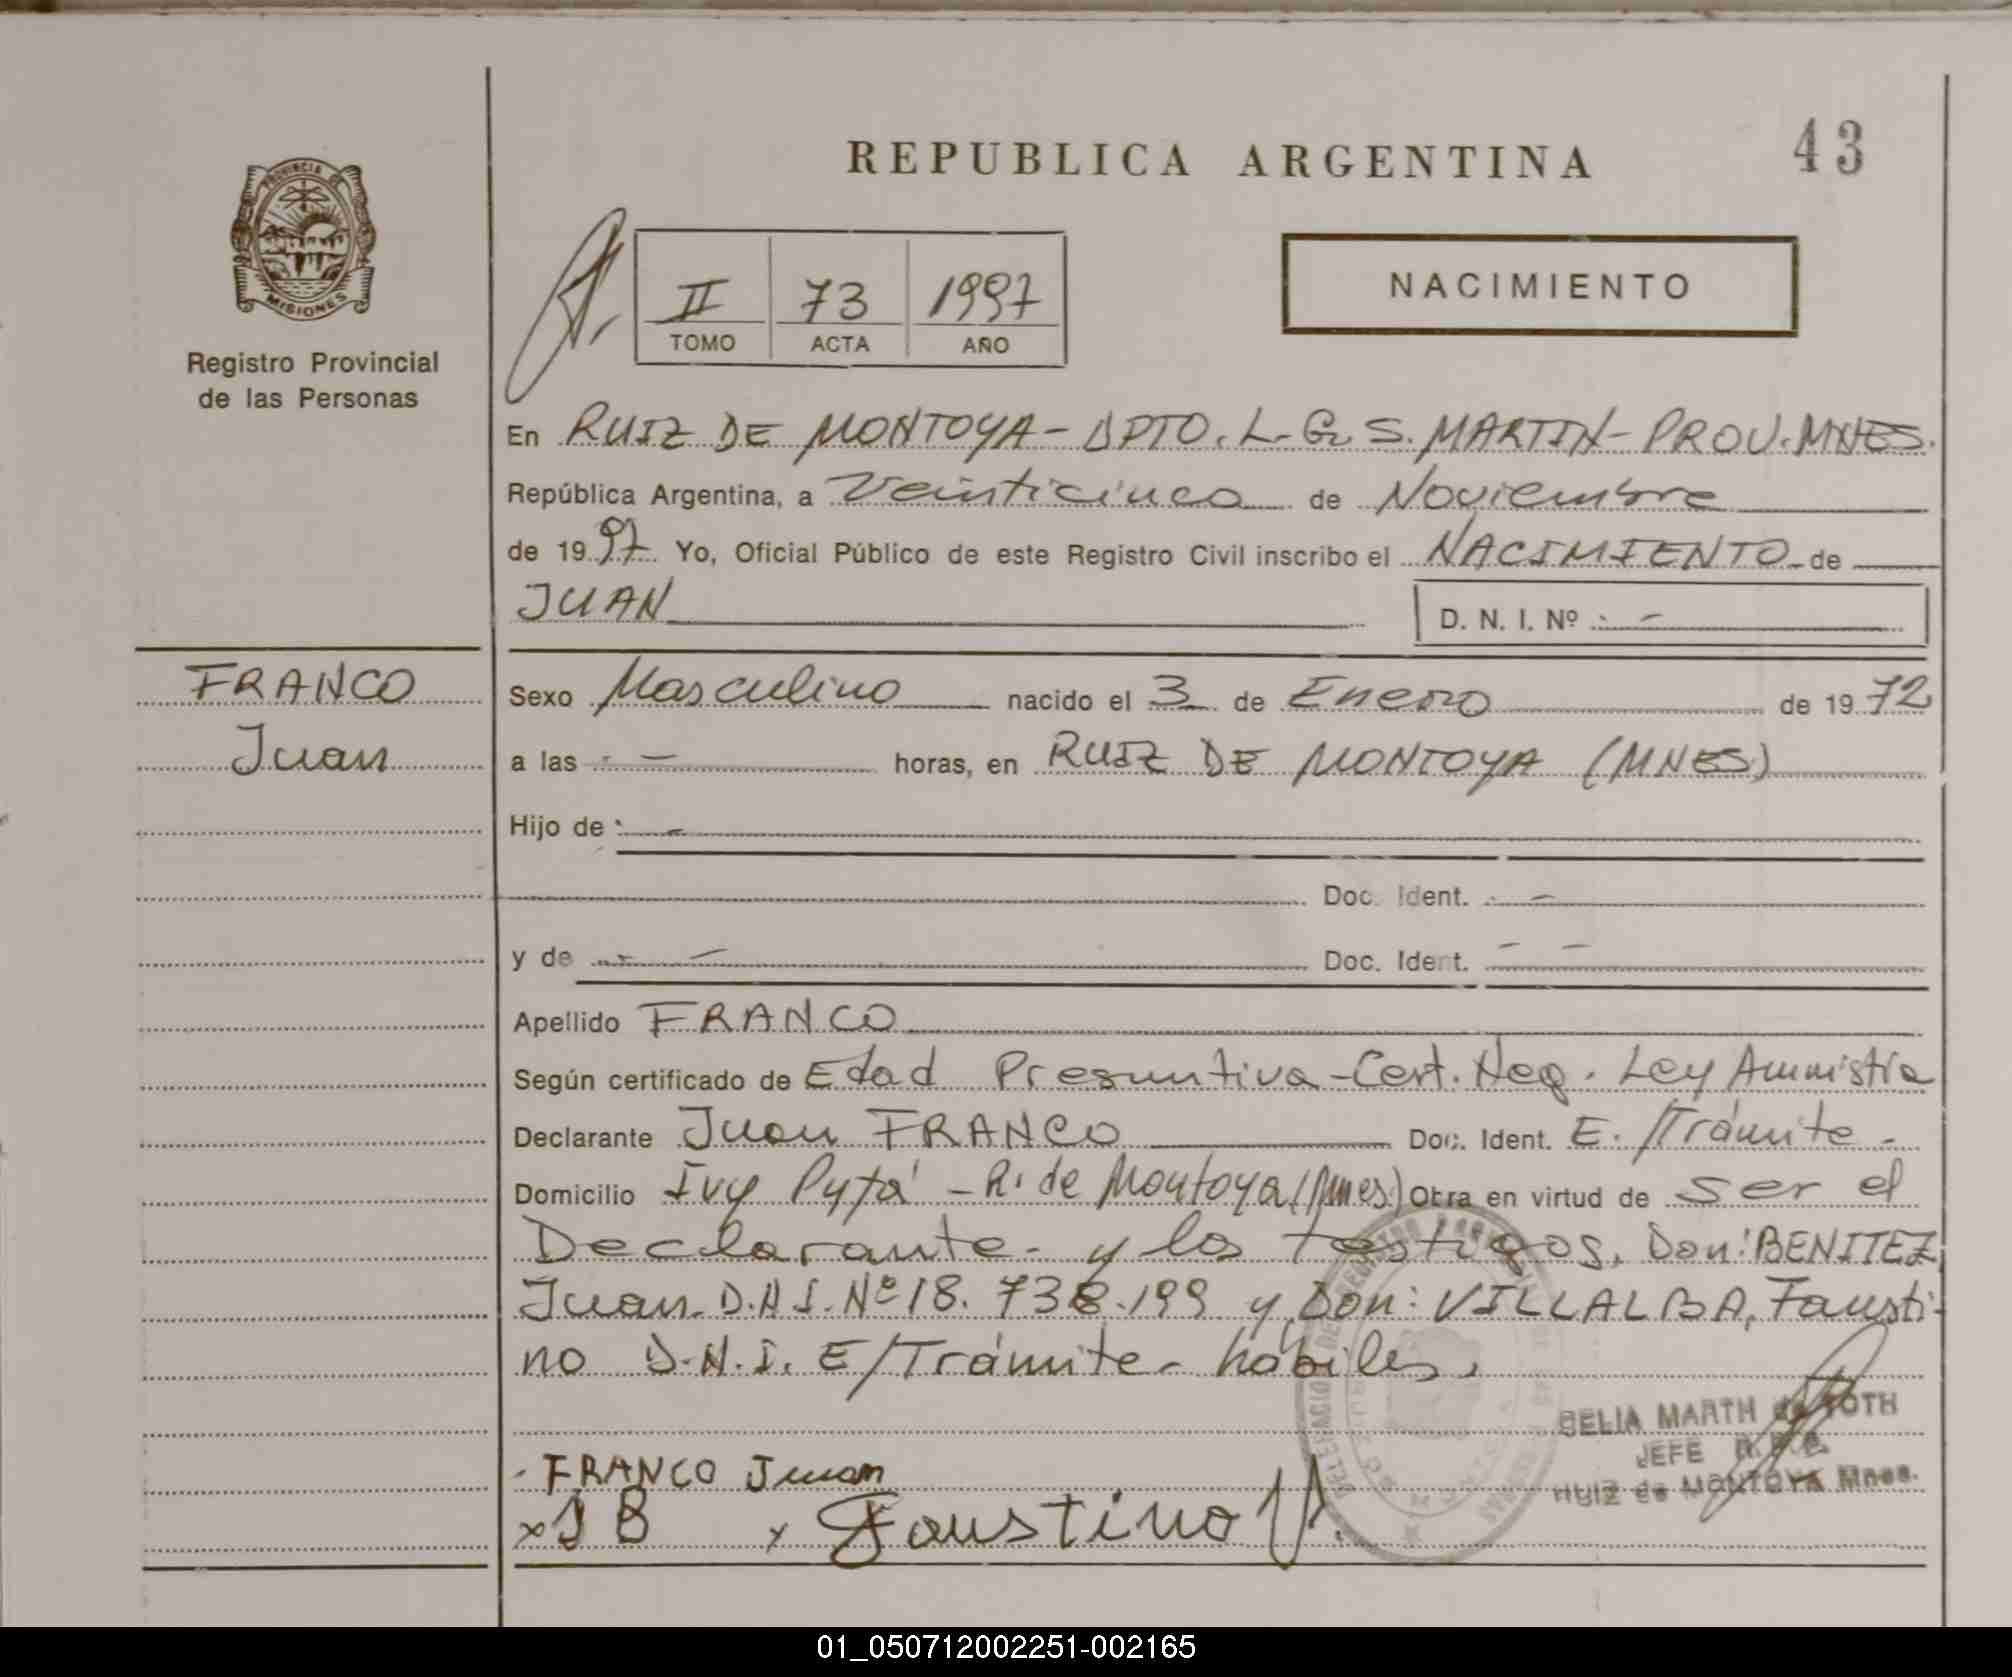 REPUBLICA ARGENTINA
43
PROVINCIA DE
MISIONES
Registro Provincial
de las Personas
II 73 1997
TOMO ACTA AÑO
NACIMIENTO
En RUIZ DE MONTOYA - DPTO. L. G. S. MARTIN - PROV. MNES.
República Argentina, a Veinticinco de Noviembre
de 19 97 Yo, Oficial Público de este Registro Civil inscribo el NACIMIENTO de
JUAN
D. N. I. Nº -
FRANCO
Juan
Sexo Masculino nacido el 3 de Enero de 19 72
a las - horas, en RUIZ DE MONTOYA (MNES)
Hijo de -
Doc. Ident. -
y de - Doc. Ident. - -
Apellido FRANCO
Según certificado de Edad Presuntiva - Cert. Neg. Ley Amnistia
Declarante Juan FRANCO Doc. Ident. E. /Trámite -
Domicilio Ivy Pytá - R. de Montoya (Mnes.) Obra en virtud de ser el
Declarante - y los testigos, Don: BENITEZ
Juan D.N.I. Nº 18. 738.199 y Don: VILLALBA, Fausti-
no D.N.I. E/Trámite - hábiles.
CELIA MARTH de TOTH
JEFE R.P.P.
RUIZ de MONTOYA Mnes.
- FRANCO Juan
x J B x Faustino V.
01_050712002251-002165